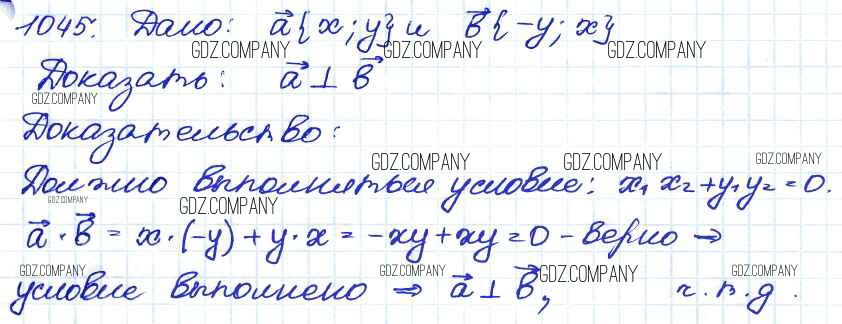 1045. Дано: a⃗{x; y} и b⃗{-y; x}
GDZ.COMPANY GDZ.COMPANY GDZ.COMPANY
Доказать: a⃗ ⊥ b⃗
GDZ.COMPANY GDZ.COMPANY
Доказательство:
GDZ.COMPANY GDZ.COMPANY GDZ.COMPANY
Должно выполняться условие: x₁x₂+y₁y₂=0.
GDZ.COMPANY GDZ.COMPANY
a⃗·b⃗ = x·(-y)+y·x = -xy+xy=0 - верно ⇒
GDZ.COMPANY GDZ.COMPANY GDZ.COMPANY GDZ.COMPANY
условие выполнено ⇒ a⃗⊥b⃗, ч.т.д.